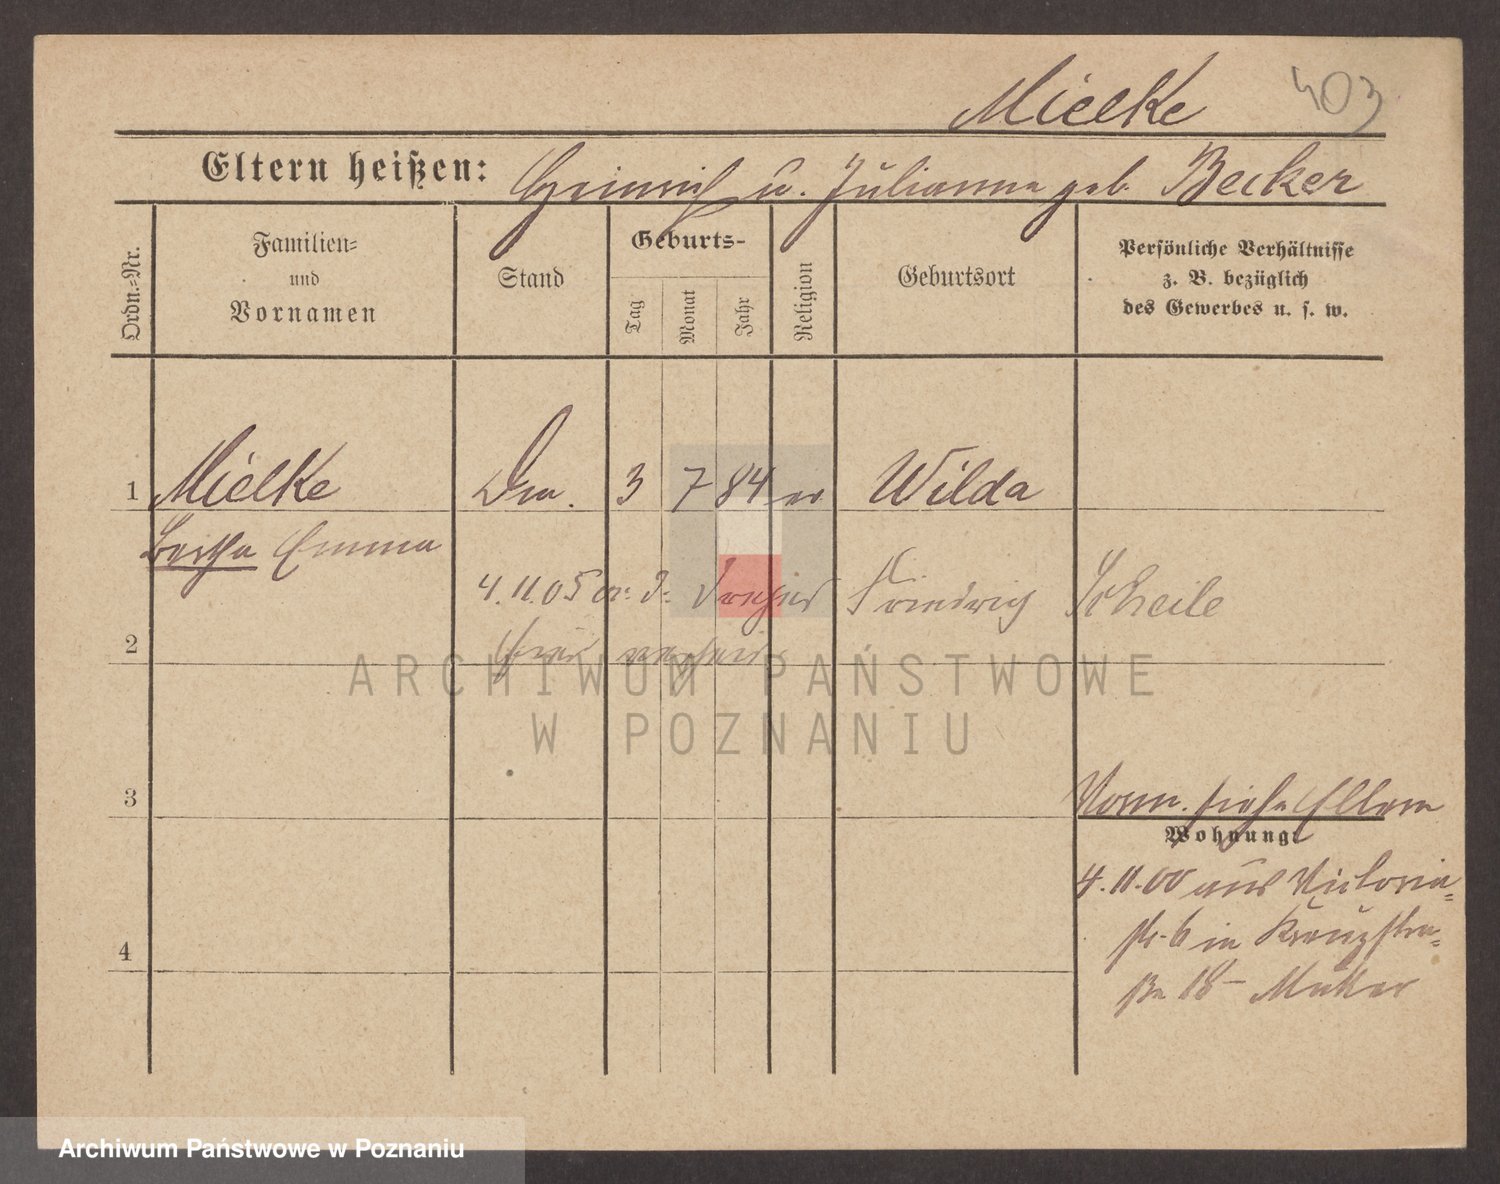 Mielke 403
Eltern heißen: Heinrich u. Julianna geb. Becker
Ordn.-Nr.
Familien-
und
Vornamen
Stand
Geburts-
Tag
Monat
Jahr
Religion
Geburtsort
Persönliche Verhältnisse
z. B. bezüglich
des Gewerbes u. s. w.
1 Mielke 3 7 84 ev Wilda
Bertha Emma
4.11.05 Friedrich Scheile
2
ARCHIWUM PAŃSTWOWE
W POZNANIU
3
Vorm. siehe Eltern
Wohnung:
4
4.11.00 aus Victoria-
str. 6 in Kreuzstra-
ße 18 - Mutter
Archiwum Państwowe w Poznaniu